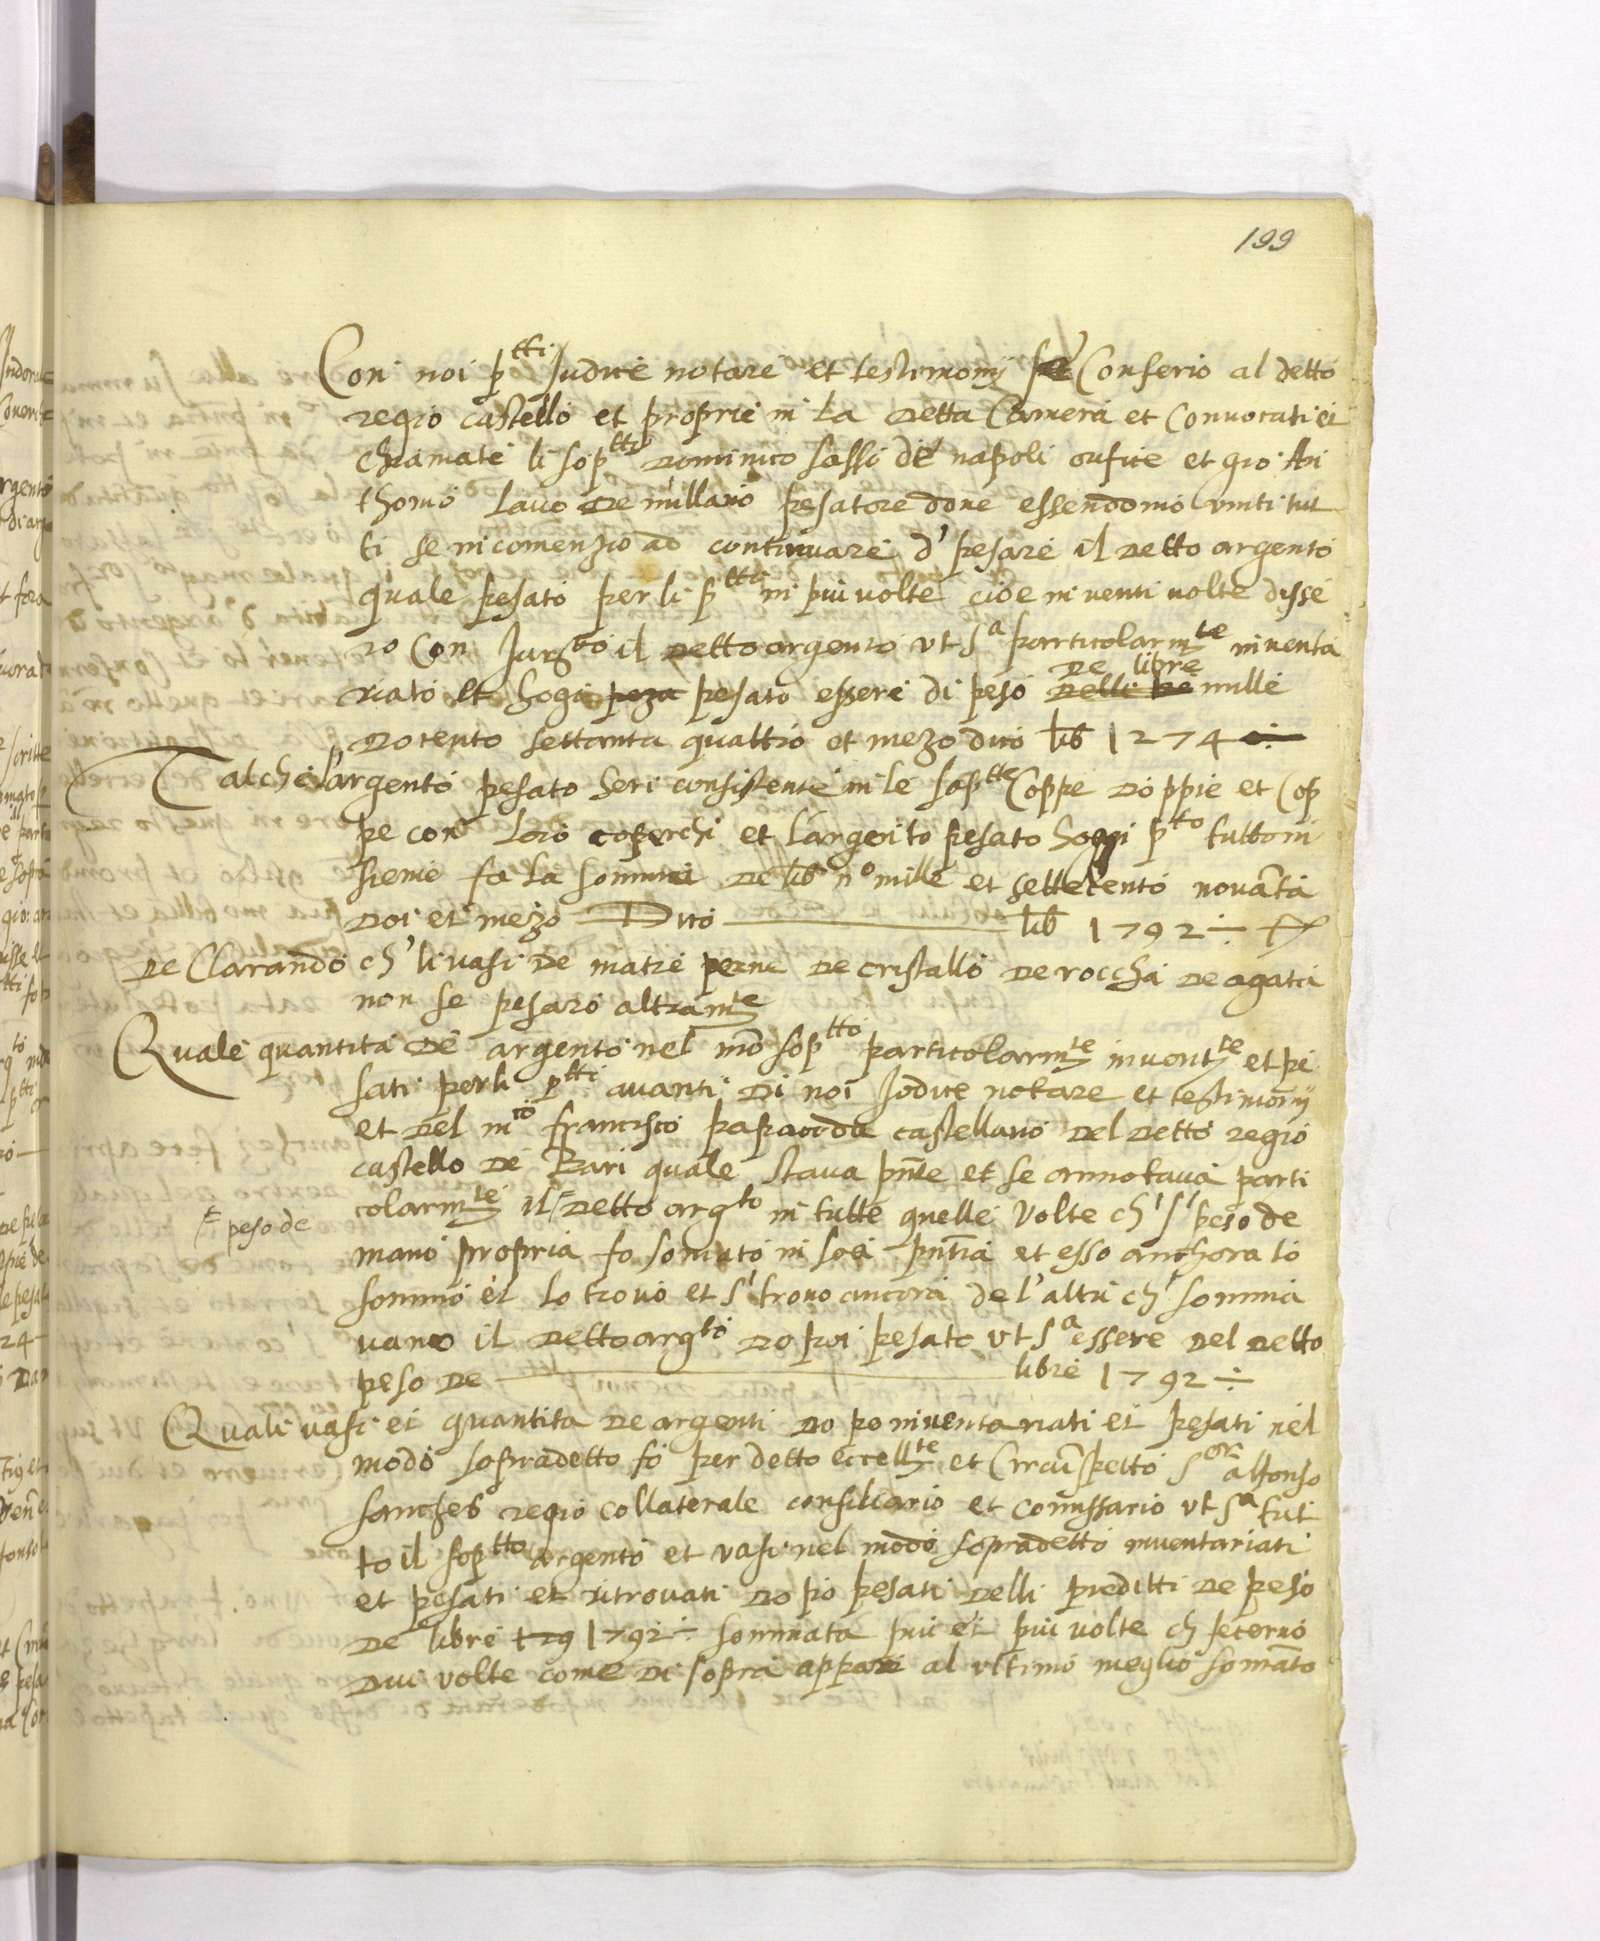 199
Con noi p.tti Judice notare et testimonij se Conferio al detto
regio castello et proprie in la detta Camera et Convocati et
chiamate li sop.tti Dominico sassi de napoli orifice et gio: An
thomo Lavo de millano pesatore dove essendomo uniti tut
ti se incomenzio ad continuare d' pesare il detto argento
quale pesato per li p.tti in piu volte cioe in venti volte disse
ro Con Jur.to il detto argento ut s.a particolarm.te inventa
de libre
riato et hogi peza pesato essere di peso delli pe mille
docento settanta quattro et mezo dico lib 1274 ÷
Talche l'argento pesato heri consistente in le sop.tte Coppe doppie et Cop
pe con loro coperchi et l'argento pesato hoggi p.to tutto in
sieme fa la somma de lib n.o mille et settecento novanta
doi et mezo Dico lib 1792 ÷
Declarando ch' li vasi de matre perne de cristallo de roccha de agata
non se pesaro altram.te
Quale quantita de argento nel mo sop.tto particolarm.te invent.te et pe
sati per li p.tti avanti di noi Jodice notare et testimonij
et del m.co francisco papacoda castellano del detto regio
castello de Bari quale stava pnte et se annotava parti
colarm.te il detto arg.to in tutte quelle volte ch' s' peso de
peso de
mano propria fo somato in soa pntia et esso anchora lo
sommo et lo trovo et s' trovo ancora de l'altri ch' somma
vano il detto arg.to dopoi pesato ut s.a essere del detto
peso de libre 1792 ÷
Quali vasi et quantita de argenti dopo inventariati et pesati nel
modo sopradetto fo per detto eccell.te et Circuspetto s.or alfonso
sanches regio collaterale consiliario et comissario ut s.a tut
to il sop.tto argento et vasi nel modo sopradetto inventariati
et pesati et ritrovati dopo pesati delli preditti de peso
de libre 179 1792 ÷ sommata piu et piu volte ch fecerno
dui volte come di sopra appare al ultimo meglio somato